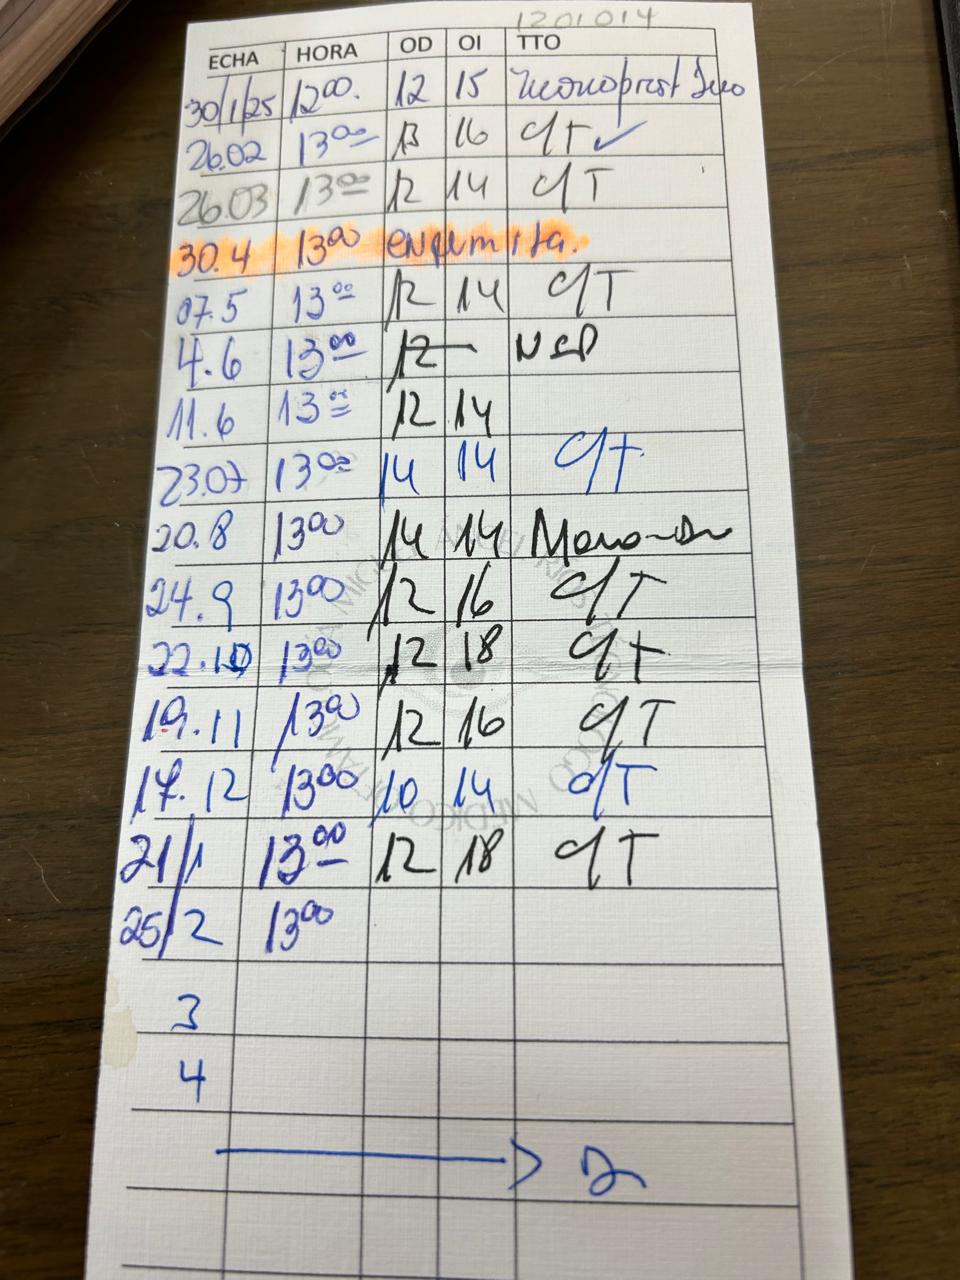 1201014
ECHA HORA OD OI TTO
30/1/25 12 00. 12 15 Monoprost Duo
26.02 13 00 13 16 C/T ✓
26.03 13 00 12 14 C/T
30.4 13 00
07.5 13 00 12 14 C/T
4.6 13 00 12 NSP
11.6 13 00 12 14
23.07 13 00 14 14 C/T
20.8 13 00 14 14
24.9 13 00 12 16 C/T
22.10 13 00 12 18 C/T
19.11 13 00 12 16 C/T
17.12 13 00 10 14 C/T
21/1 13 00 12 18 C/T
25/2 13 00
3
4